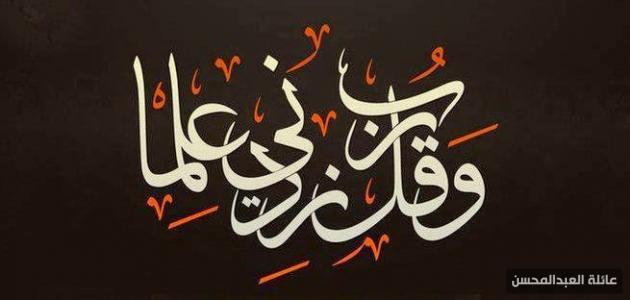 وَقُل رَّبِّ زِدْنِي عِلْمًا
عائلة العبدالمحسن